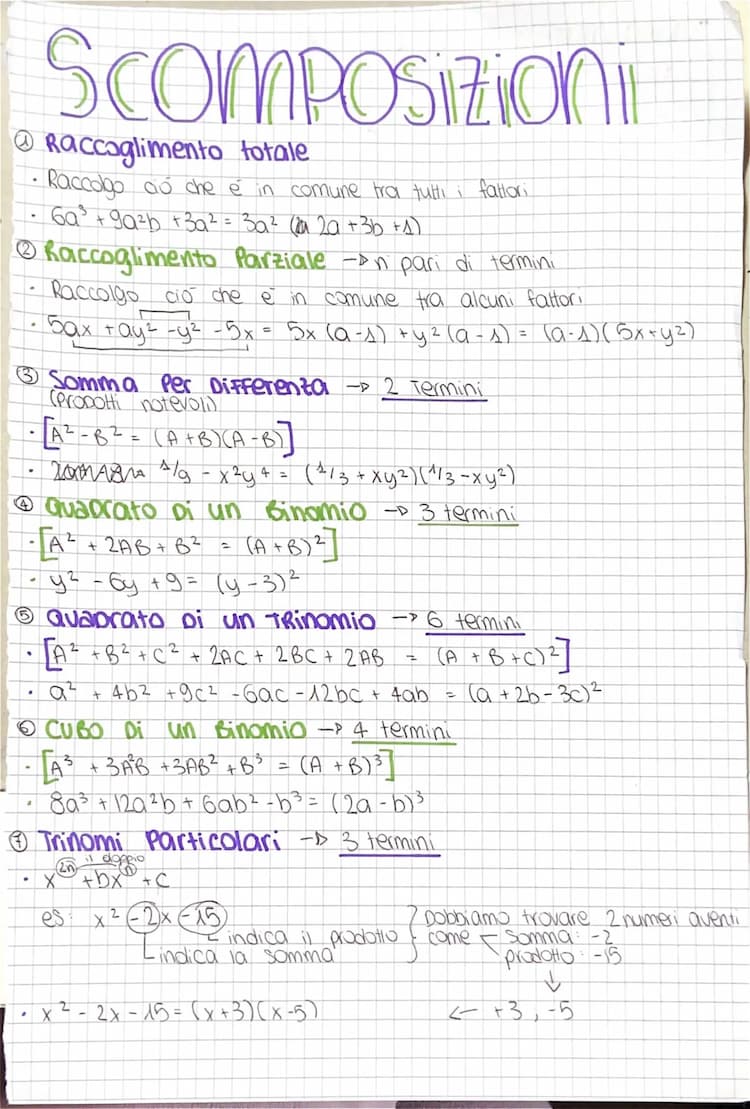 SCOMPOSIZIONI
① Raccoglimento totale
· Raccolgo ciò che é in comune tra tutti i fattori
· 6a³ + 9a²b + 3a² = 3a² (2a + 3b + 1)
② Raccoglimento Parziale → n pari di termini
· Raccolgo ciò che é in comune tra alcuni fattori
· 5ax + ay² - y² - 5x = 5x (a - 1) + y² (a - 1) = (a - 1)(5x + y²)
③ Somma Per Differenza → 2 Termini
(Prodotti notevoli)
· [A² - B² = (A + B)(A - B)]
· 1/9 - x²y⁴ = (1/3 + xy²)(1/3 - xy²)
④ Quadrato Di un Binomio → 3 termini
· [A² + 2AB + B² = (A + B)²]
· y² - 6y + 9 = (y - 3)²
⑤ Quadrato Di un Trinomio → 6 termini
· [A² + B² + C² + 2AC + 2BC + 2AB = (A + B + C)²]
· a² + 4b² + 9c² - 6ac - 12bc + 4ab = (a + 2b - 3c)²
⑥ Cubo Di un Binomio → 4 termini
· [A³ + 3A²B + 3AB² + B³ = (A + B)³]
· 8a³ + 12a²b + 6ab² - b³ = (2a - b)³
⑦ Trinomi Particolari → 3 termini
il doppio
· x²ⁿ + bxⁿ + c
es: x² - 2x - 15
indica il prodotto
indica la somma
Dobbiamo trovare 2 numeri aventi
come somma: -2
prodotto: -15
↓
· x² - 2x - 15 = (x + 3)(x - 5) ← +3, -5